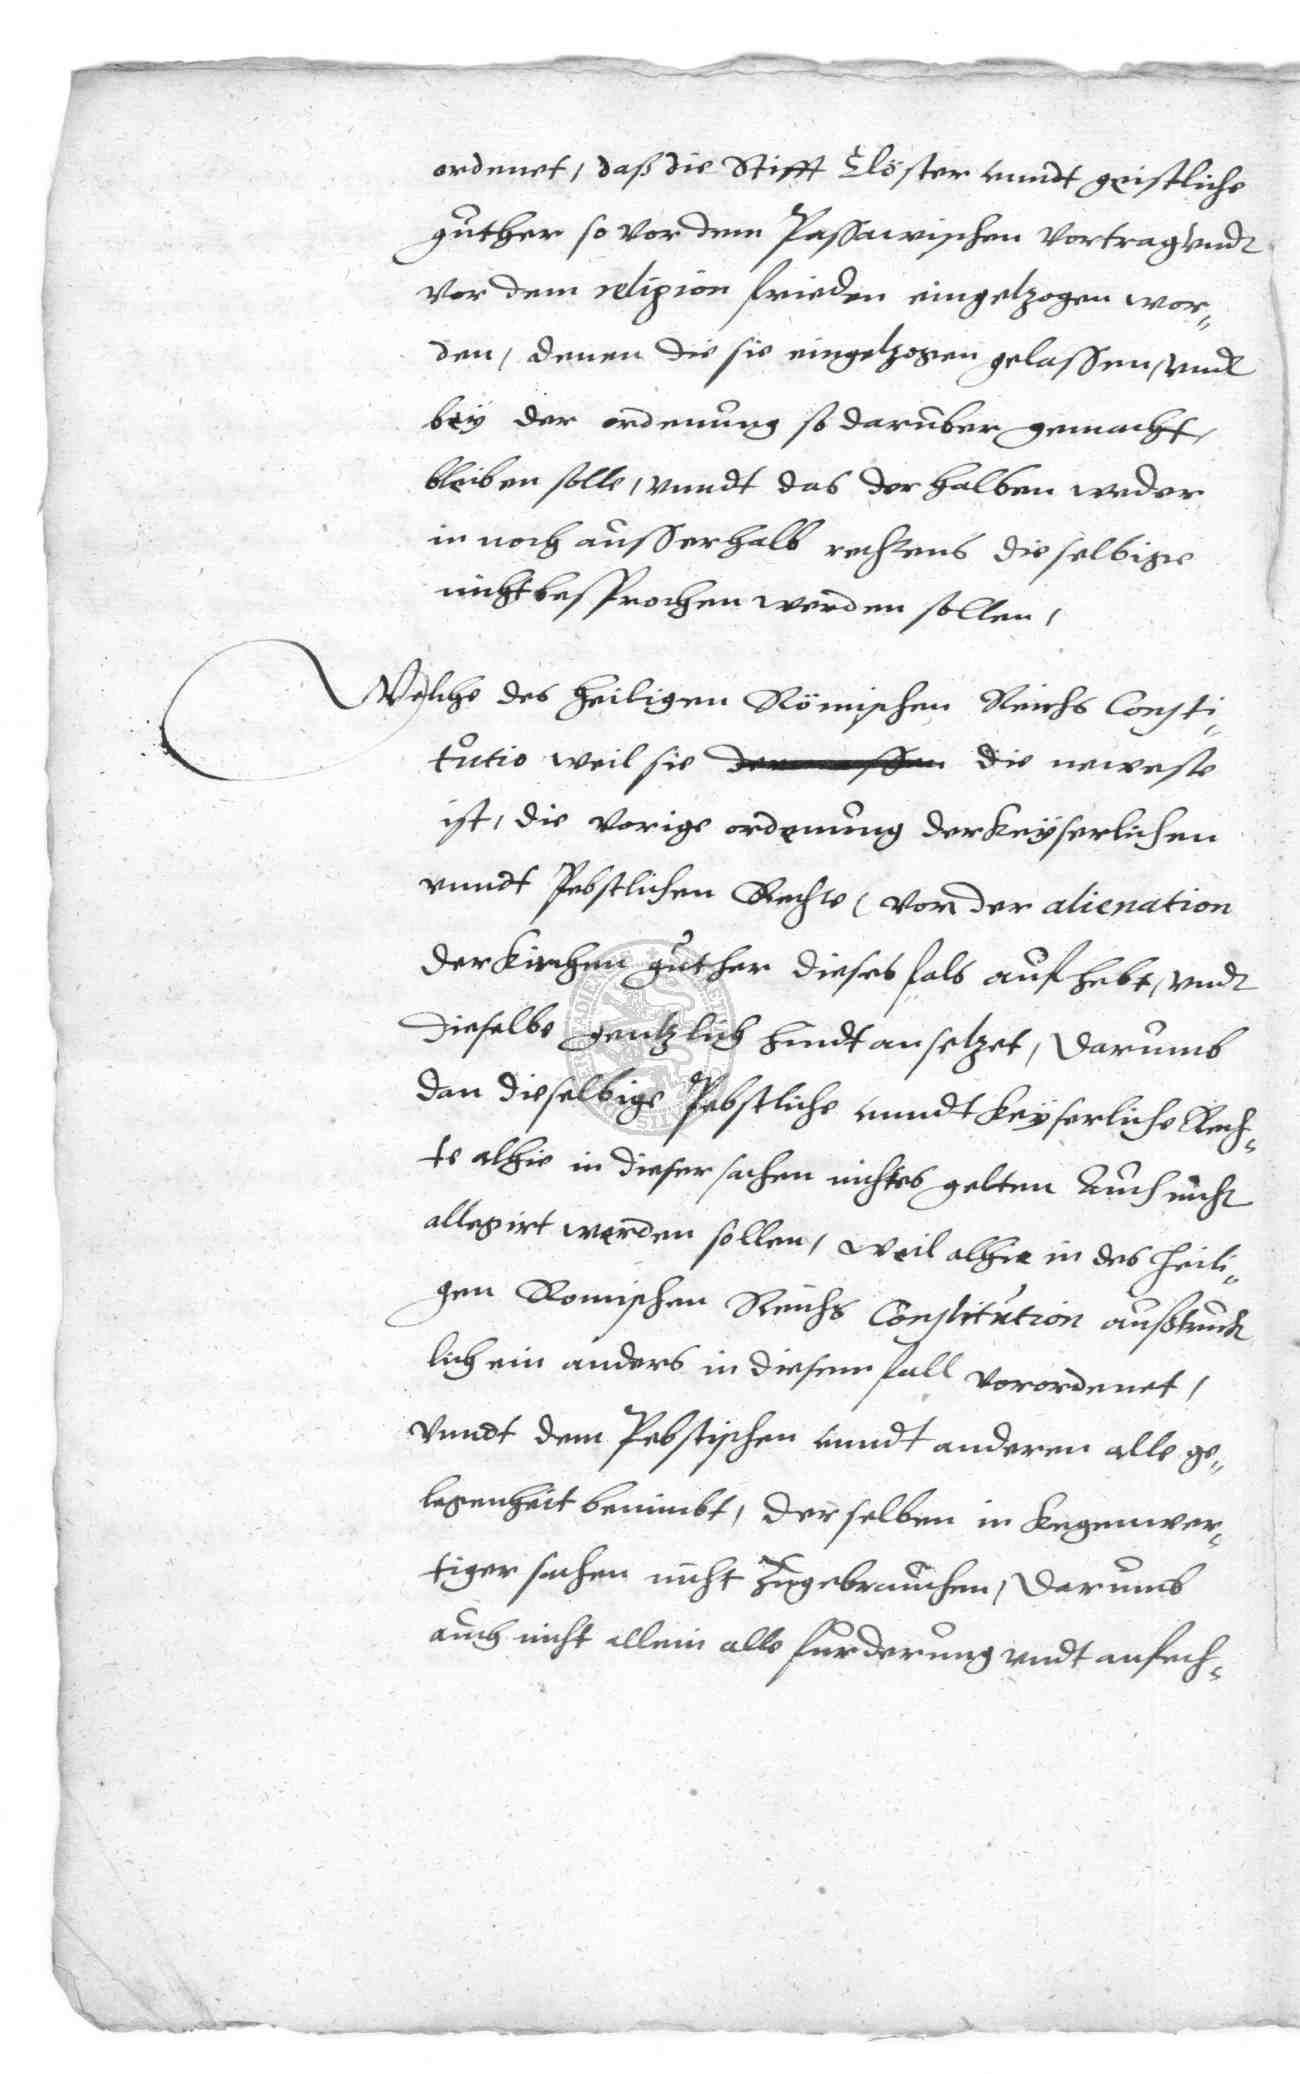 ordenet, daß die Stifft Clöster vnndt geistliche
guther so vor dem Passawischen vortrag vndt
vor dem religion frieden eingetzogen wor„
den, denen die sie eingetzogen gelassen, vndt
bey der ordenung so daruber gemacht,
bleiben solle, vnndt das derhalben weder
in noch ausserhalb rechtens dieselbige
nicht besprochen werden sollen,
Welche des heiligen Römischen Reichs Consti„
tutio weil sie dermassen die neweste
ist, die vorige ordenung der Keyserlichen
vnndt Pebstlichen Rechte, von der alienation
der Kirchen guther dieses fals aufhebt, vndt
dieselbe gentzlich hindtansetzet, darumb
dan dieselbige Pebstliche vnndt Keyserliche Rech„
te alhie in dieser sachen nichtes gelten Auch nicht
allegirt werden sollen, weil alhie in des heili„
gen Romischen Reichs Constitution außtruck
lich ein anders in diesem fall vorordenet,
vnndt dem Pebstischen vnndt anderen alle ge„
legenheit benimbt, derselben in kegenwer„
tiger sachen nicht zugebrauchen, darumb
auch nicht allein alle furderung vndt anfech„